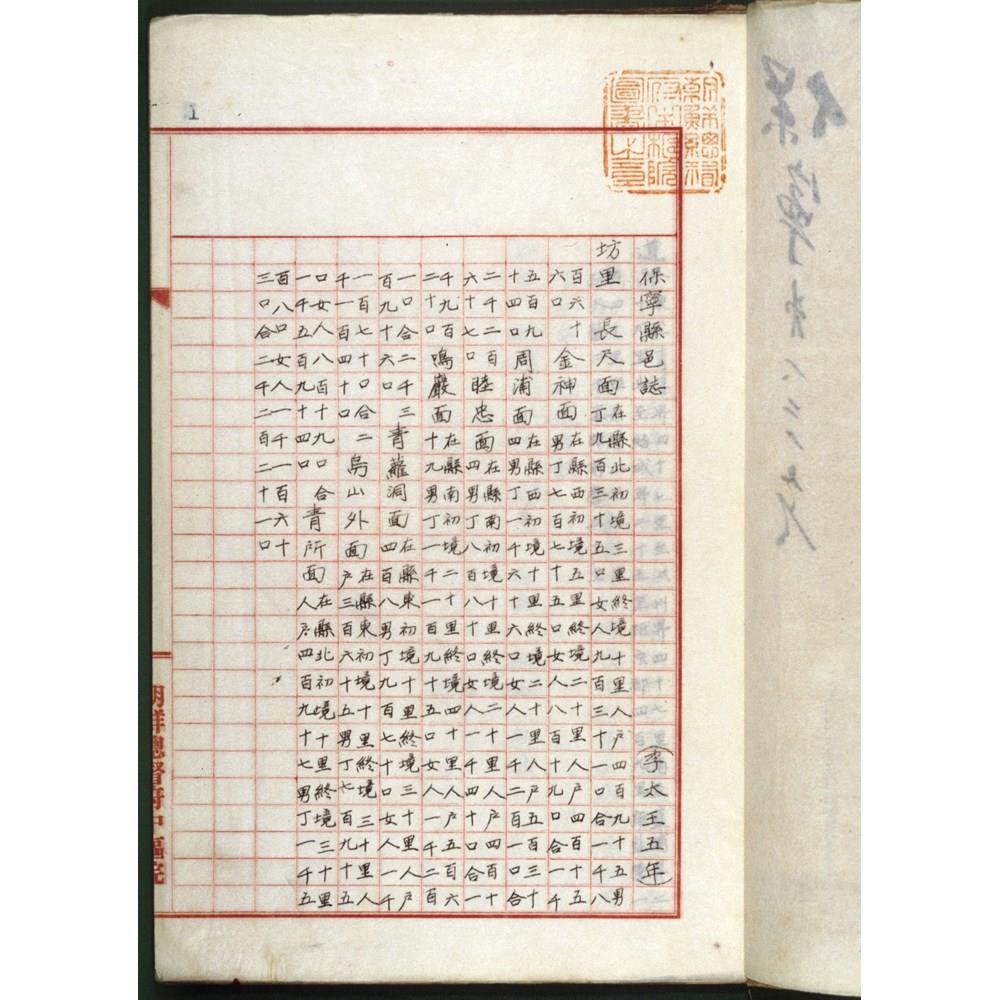 1
保寧縣邑誌 (李太王五年)
坊里 長尺面
在縣北初境三里終境十里人戶四百九十五男
丁九百三十五口女人九百三十一口合一千八
百六十
六口
金神面
在縣西初境十五里終境二十里人戶四百十五
男丁七百七十五口女人八百十九口合一千
五百九
十四口
周浦面
在縣西初境十里終境二十里人戶五百三十
四男丁一千六十六口女人一千二百一口合
二千二百
六十七口
睦忠面
在縣南初境十里終境二十里人戶四百十
四男丁八百八十口女人一千四十口合一
千九百
二十口
鳴巖面
在縣南初境二十里終境四十里人戶五百六
十九男丁一千一百九十五口女人一千二百
一口合二千三
百九十六口
青蘿洞面
在縣東初境十里終境三十里人戶
四百八男丁九百七十口女人一千
一百七十口合二
千一百四十口
烏山外面
在縣東初境十里終境三十里人
戶三百六十五男丁七百九十五
口女人八百十九口合
一千五百九十四口
青所面
在縣北初境十里終境三十里
人戶四百九十七男丁一千五
百八口女人一千一百六十
三口合二千二百二十一口
朝鮮總督府中樞院